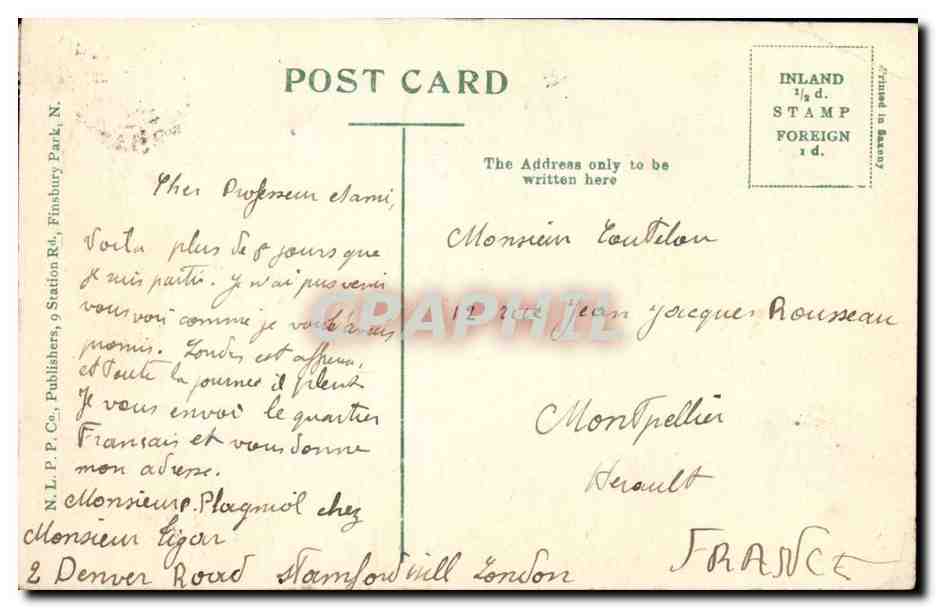 POST CARD
INLAND
1/2 d.
STAMP
FOREIGN
1 d.
Printed in Saxony
The Address only to be
written here
N. L. P. P. Co., Publishers, 9 Station Rd., Finsbury Park, N.
Cher Professeur et ami,
Voila plus de 8 jours que
je suis parti. Je n'ai pus venir
vous voir comme je vous l'avais
promis. Londres est affreux,
et toute la journee il pleut
Je vous envoi le quartier
Français et vous donne
mon adresse.
Monsieur P. Plagniol chez
Monsieur Tigar
2 Denver Road Stamford will London
Monsieur Toutelou
12 rue Jean Jacques Rousseau
Montpellier
Herault
FRANCE
CRAPHIL